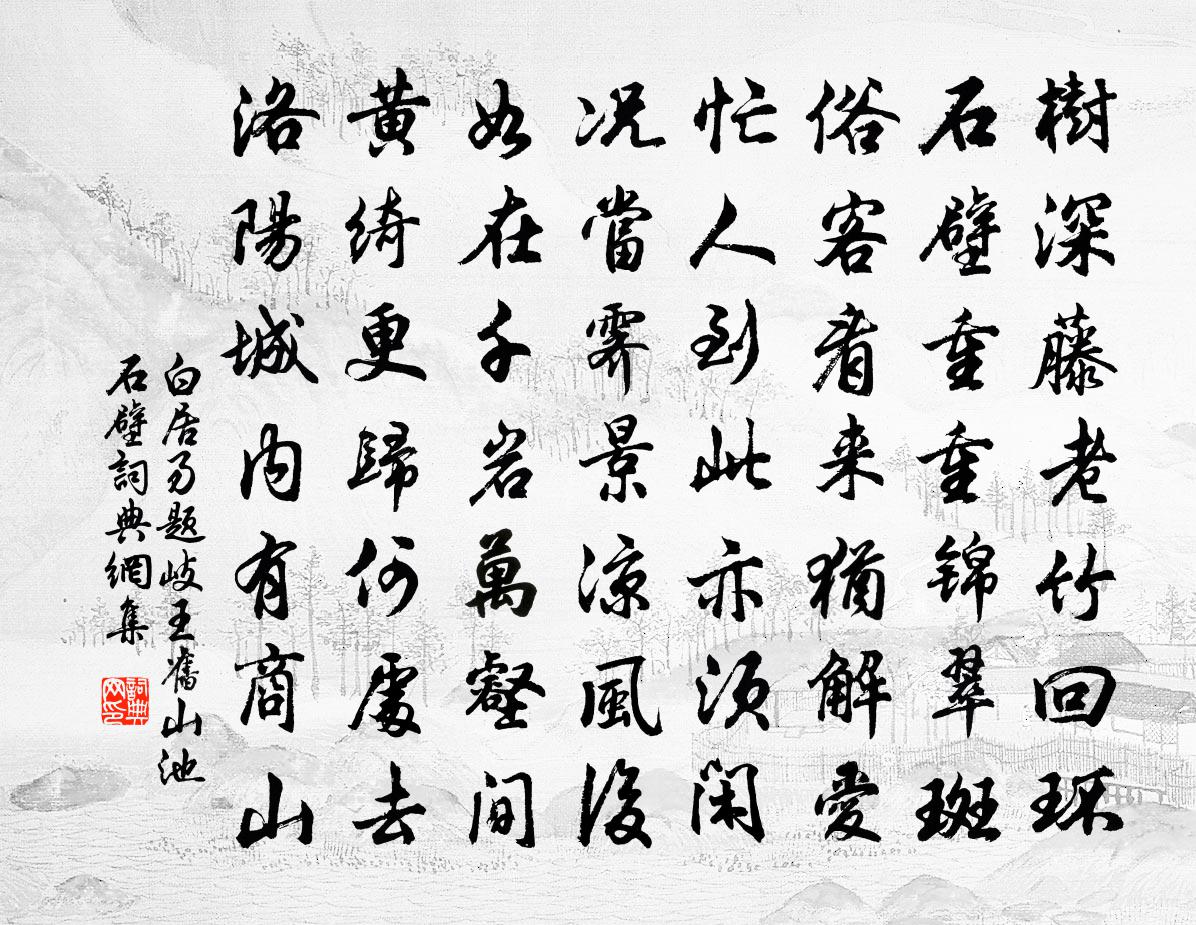 樹深藤老竹回环
石壁重重锦翠斑
俗客看来猶解愛
忙人到此亦须闲
况當霽景凉風後
如在千岩萬壑間
黄綺更歸何處去
洛陽城内有商山
白居易题岐王舊山池
石壁詞典網集
詞典
网印